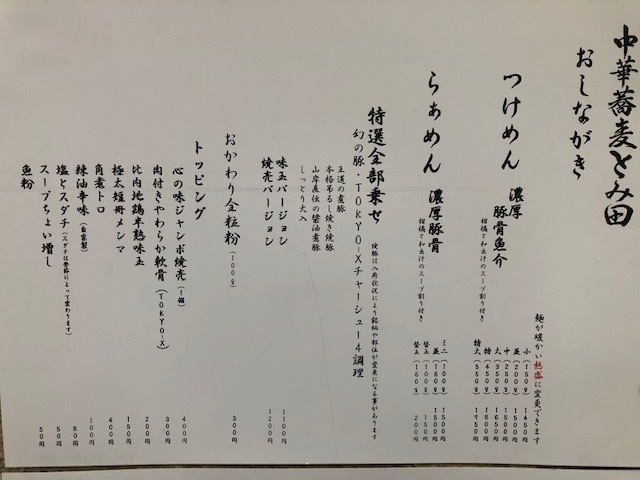 中華蕎麦とみ田
おしながき
つけめん 濃厚 豚骨魚介
柑橘と和出汁のスープ割り付き
麺が暖かい熱盛に変更できます
小(150g) 1450円
並(200g) 1500円
中(250g)
大(350g) 1650円
特(450g) 1800円
特大(550g) 1950円
らぁめん 濃厚豚骨
柑橘と和出汁のスープ割り付き
ミニ(100g) 1500円
並(160g) 1500円
替玉(100g) 150円
替玉(160g) 200円
特選全部乗せ
焼豚は入荷状況により銘柄や部位が変更になる事があります
幻の豚・TOKYO-Xチャーシュー4調理
王道の煮豚
本格吊るし焼き焼豚
山岸直伝の醤油煮豚
しっとり大入
味玉バージョン 1100円
焼売バージョン 1200円
おかわり全粒粉(100g) 300円
トッピング
心の味ジャンボ焼売(1個) 400円
肉付きやわらか軟骨(TOKYO-X) 300円
比内地鶏半熟味玉 200円
極太短冊メンマ 150円
角煮トロ 400円
辣油辛味(自家製) 100円
塩とスダチ(スダチは季節によって変わります) 80円
スープちょい増し 50円
魚粉 50円